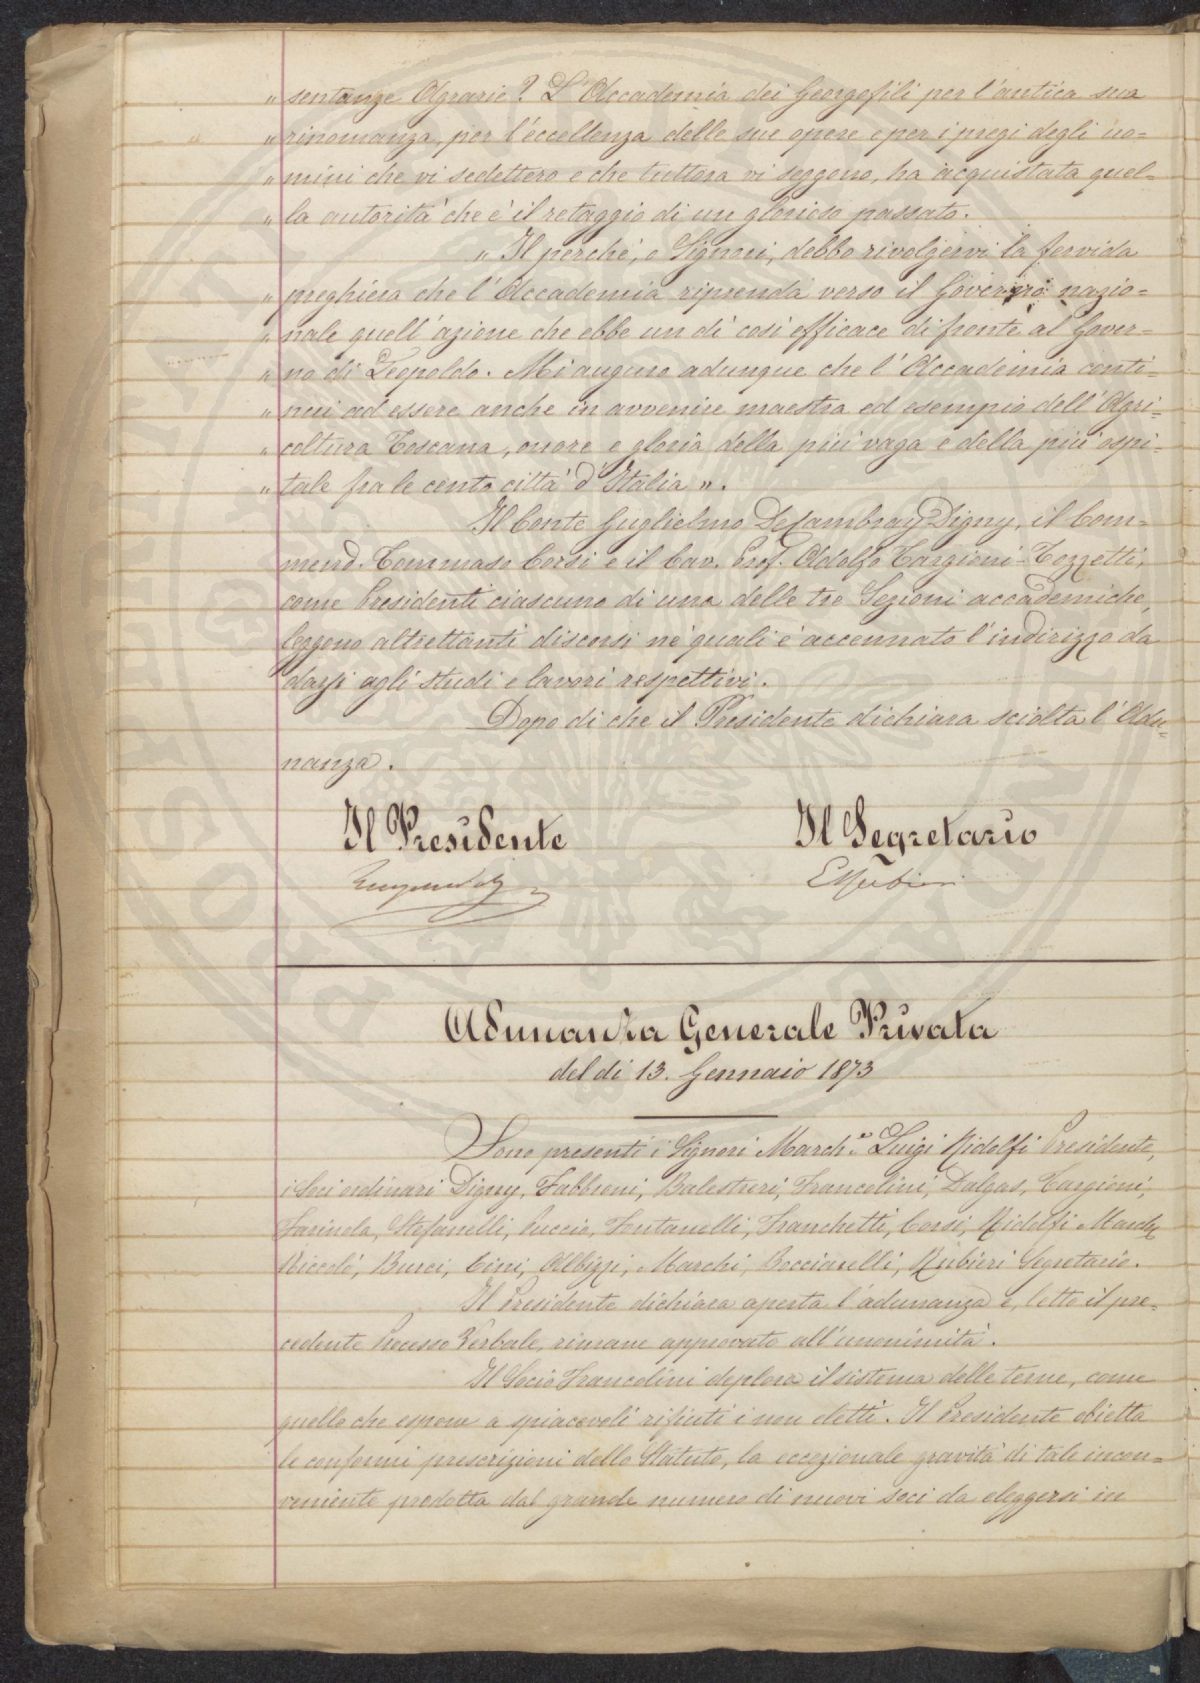 „ sentanze Agrarie? L'Accademia dei Georgofili per l'antica sua
„ rinomanza, per l'eccellenza delle sue opere e per i pregi degli uo=
„ mini che vi sedettero e che tuttora vi seggono, ha acquistata quel=
„ la autorità che è il retaggio di un glorioso passato.
„ Il perchè, o Signori, debbo rivolgervi la fervida
„ preghiera che l'Accademia riprenda verso il Governo nazio=
„ nale quell'azione che ebbe un dì così efficace di fronte al Gover=
„ no di Leopoldo. Mi auguro adunque che l'Accademia conti=
„ nui ad essere anche in avvenire maestra ed esempio dell'Agri=
„ coltura Toscana, onore e gloria della più vaga e della più ospi=
„ tale fra le cento città d'Italia ".
Il Conte Guglielmo DeCambray Digny, il Com=
mend. Tommaso Corsi e il Cav. Prof. Adolfo Targioni=Tozzetti,
come Presidenti ciascuno di una delle tre Sezioni accademiche,
leggono altrettanti discorsi ne' quali è accennato l'indirizzo da
darsi agli studi e lavori respettivi.
Dopo di che il Presidente dichiara sciolta l'Adu=
nanza.
Il Presidente Il Segretario
ERubieri
Adunanza Generale Privata
del dì 13. Gennaio 1873
Sono presenti i Signori March.e Luigi Ridolfi Presidente,
i Soci ordinari Digny, Fabbroni, Balestreri, Francolini, Dalgas, Targioni,
Farinola, Stefanelli, Puccio, Fontanelli, Franchetti, Corsi, Ridolfi March.
Niccolò, Burci, Cini, Albizzi, Marchi, Bocciarelli, Rubieri Segretario.
Il Presidente dichiara aperta l'adunanza e, letto il pre=
cedente Processo Verbale, rimane approvato all'unanimità.
Il Socio Francolini deplora il sistema delle terne, come
quello che espone a spiacevoli rifiuti i non eletti. Il Presidente obietta
le conformi prescrizioni dello Statuto, la eccezionale gravità di tale incon=
veniente prodotta dal grande numero di nuovi soci da eleggersi in